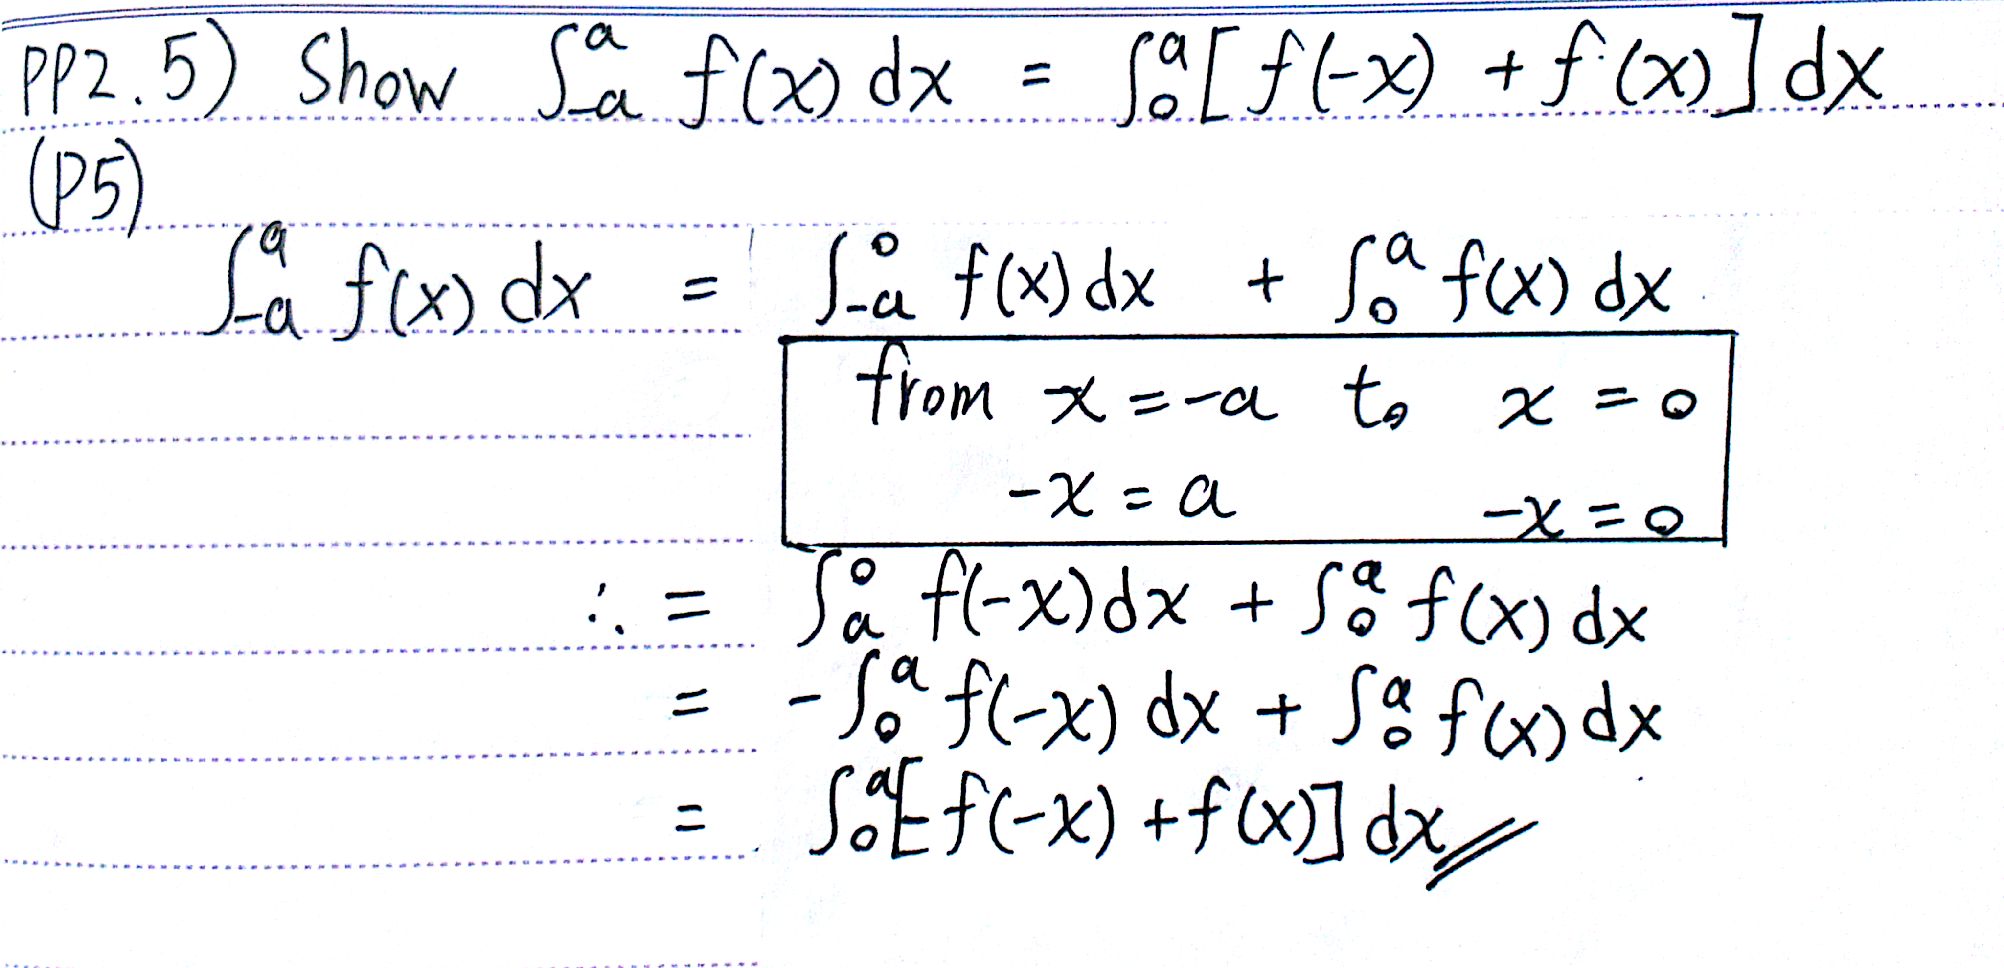 PP2.5) Show ∫_{-a}^{a} f(x) dx = ∫_{0}^{a} [f(-x) + f(x)] dx
(P5)
∫_{-a}^{a} f(x) dx = ∫_{-a}^{0} f(x) dx + ∫_{0}^{a} f(x) dx
from x = -a to x = 0
-x = a -x = 0
∴ = ∫_{a}^{0} f(-x) dx + ∫_{0}^{a} f(x) dx
= -∫_{0}^{a} f(-x) dx + ∫_{0}^{a} f(x) dx
= ∫_{0}^{a} [-f(-x) + f(x)] dx